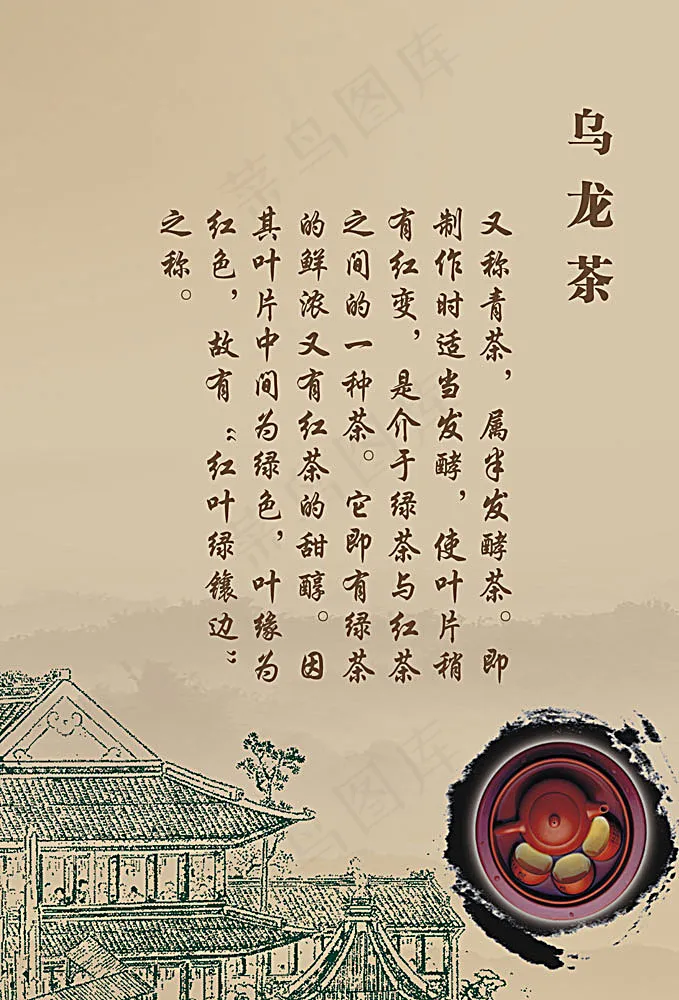 乌龙茶
又称青茶，属半发酵茶。即
制作时适当发酵，使叶片稍
有红变，是介于绿茶与红茶
之间的一种茶。它即有绿茶
的鲜浓又有红茶的甜醇。因
其叶片中间为绿色，叶缘为
红色，故有“红叶绿镶边”
之称。
菜鸟图库
菜鸟图库
菜鸟图库